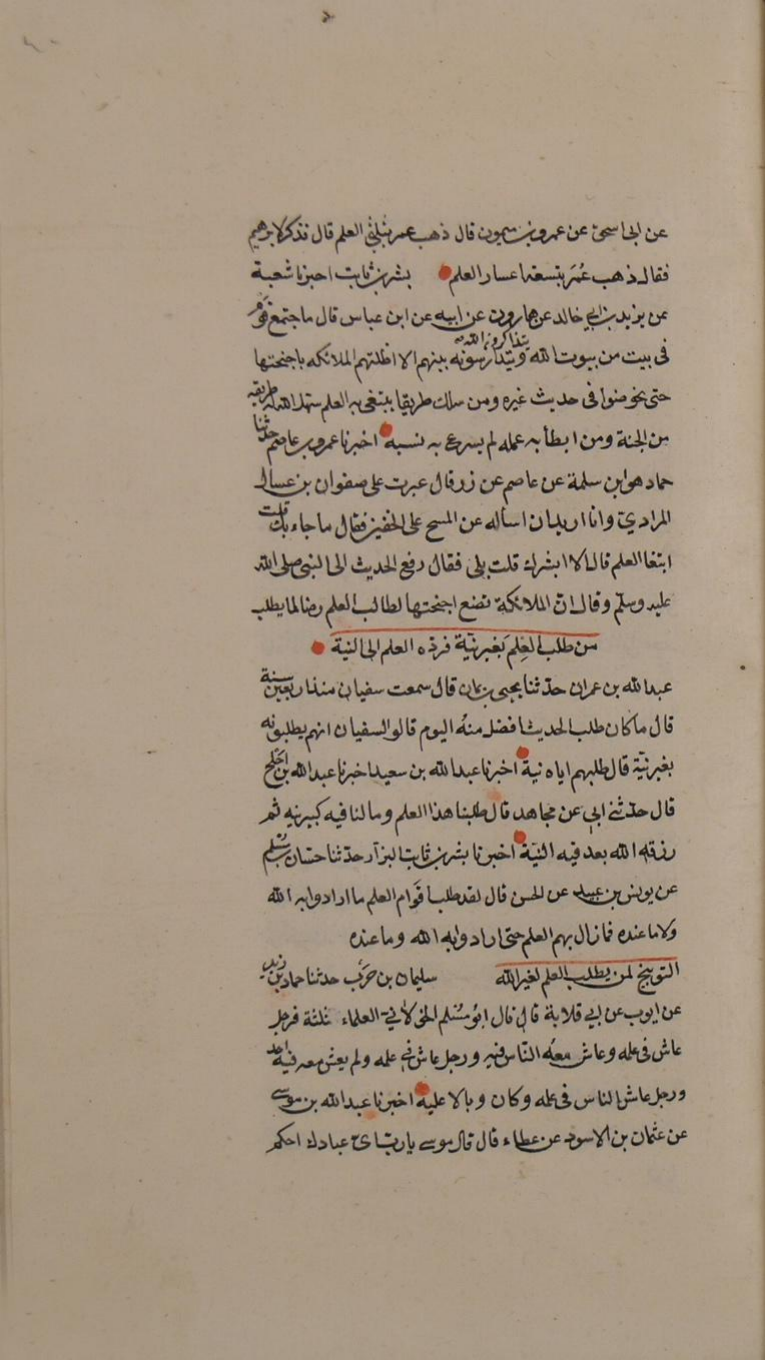 عن ابى اسحق عن عمرو بن ميمون قال ذهب عمر بثلثى العلم قال فذكر لابرهيم
فقال ذهب عُمَر بتسعة اعشار العلم بشر بن ثابت اخبرنا شعبة
عن يزيد بن ابي خالد عن هارون عن ابيه عن ابن عباس قال ما اجتمع قوم
يتذاكرون كتاب الله
فى بيت من بيوت الله ويتدارسونه بينهم الا اظلتهم الملائكه باجنحتها
حتى يخوضوا فى حديث غيره ومن سلك طريقا يبتغى به العلم سهل الله له طريقه
من الجنة ومن ابطأ به عمله لم يسرع به نسبه اخبرنا عمرو بن عاصم حدثنا
حماد هو ابن سلمة عن عاصم عن زر قال غبرت على صفوان بن عسال
المرادي وانا اريد ان اساله عن المسح على الخفين فقال ما جاء بك قلت
ابتغا العلم قال الا ابشرك قلت بلى فقال رفع الحديث الى النبى صلى الله
عليه وسلم وقال ان الملائكة تضع اجنحتها لطالب العلم رضا لما يطلب
من طلب العِلم بَغير نيّة فردّه العلم الى النية
عبد الله بن عمران حدثنا يحيى بن يمان قال سمعت سفيان منذ اربعين سنة
قال ما كان طلب الحديث افضل منهُ اليوم قالوا لسفيان انهم يطلبونه
بغير نيّة قال طلبهم اياه نية اخبرنا عبد الله بن سعيد اخبرنا عبد الله بن اجلح
قال حدّثني ابي عن مجاهد قال طلبنا هذا العلم وما لنا فيه كبير نيه ثم
رزق الله بعد فيه النيّة اخبرنا بشر بن ثابت البزار حدّثنا حسّان بن مُسلم
عن يونس بن عبيد عن الحسن قال لقد طلب اقوام العلم ما ارادوا به الله
ولا ما عنده فما زال بهم العلم حتى ارادوا به الله وما عنده
التوبيخ لمن يطلب العلم لغير الله سليمان بن حَرب حدثنا حماد بن زيد
عن ايوب عن ابي قلابة قال قال ابو مُسْلم الخولاني العلماء ثلثة فرجل
عاش فى علمه وعاش معهُ الناس فيه ورجل عاش في علمه ولم يعش معه فيه احد
ورجل عاش الناس فى علمه وكان وبالا عليه اخبرنا عبد الله بن موسى
عن عثمان بن الاسود عن عطاء قال قال موسى يا رب اى عبادك احكم